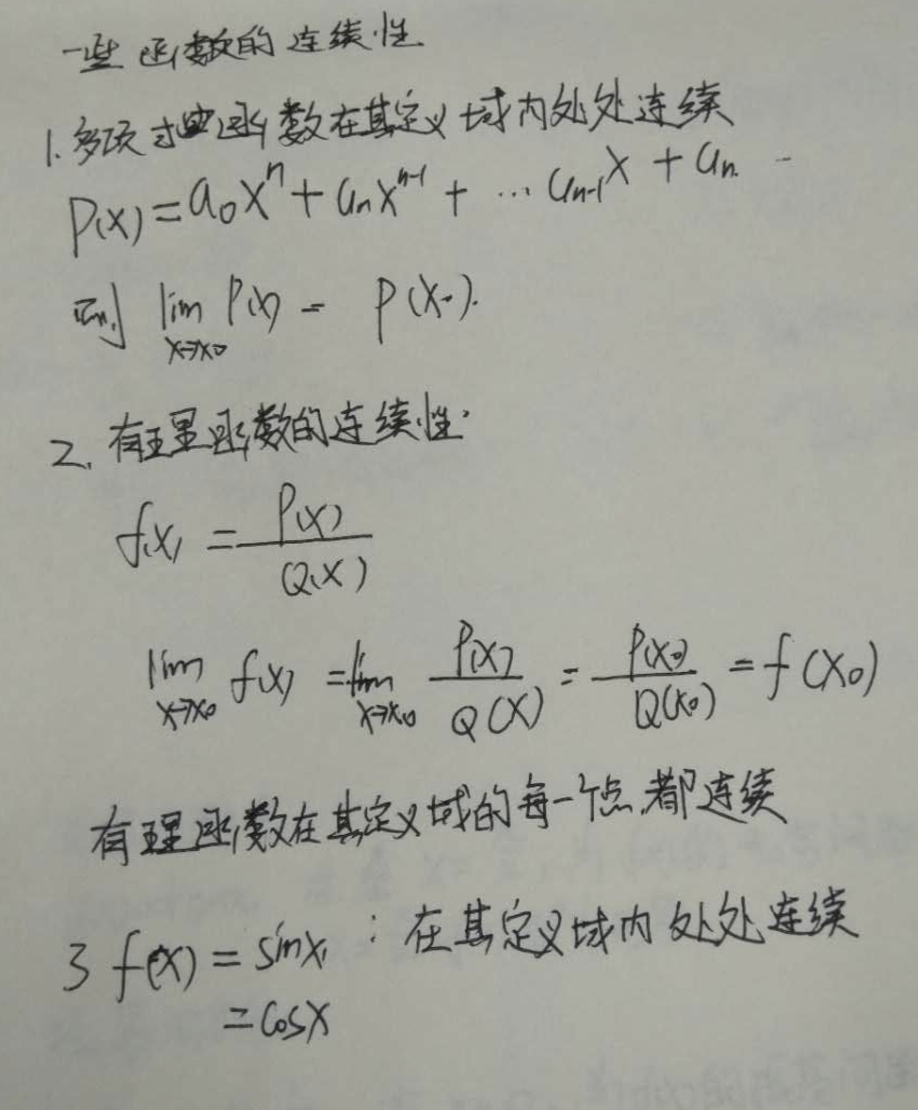 一些函数的连续性
1.多项式函数在其定义域内处处连续
P(x)=a₀xⁿ+aₙxⁿ⁻¹+…aₙ₋₁x+aₙ.
则 lim P(x) = P(x₀).
x→x₀
2.有理函数的连续性.
f(x) = P(x)/Q(x)
lim f(x) = lim P(x)/Q(x) = P(x₀)/Q(x₀) = f(x₀)
x→x₀ x→x₀
有理函数在其定义域的每一个点都连续
3 f(x) = sinx, : 在其定义域内处处连续
= cosx